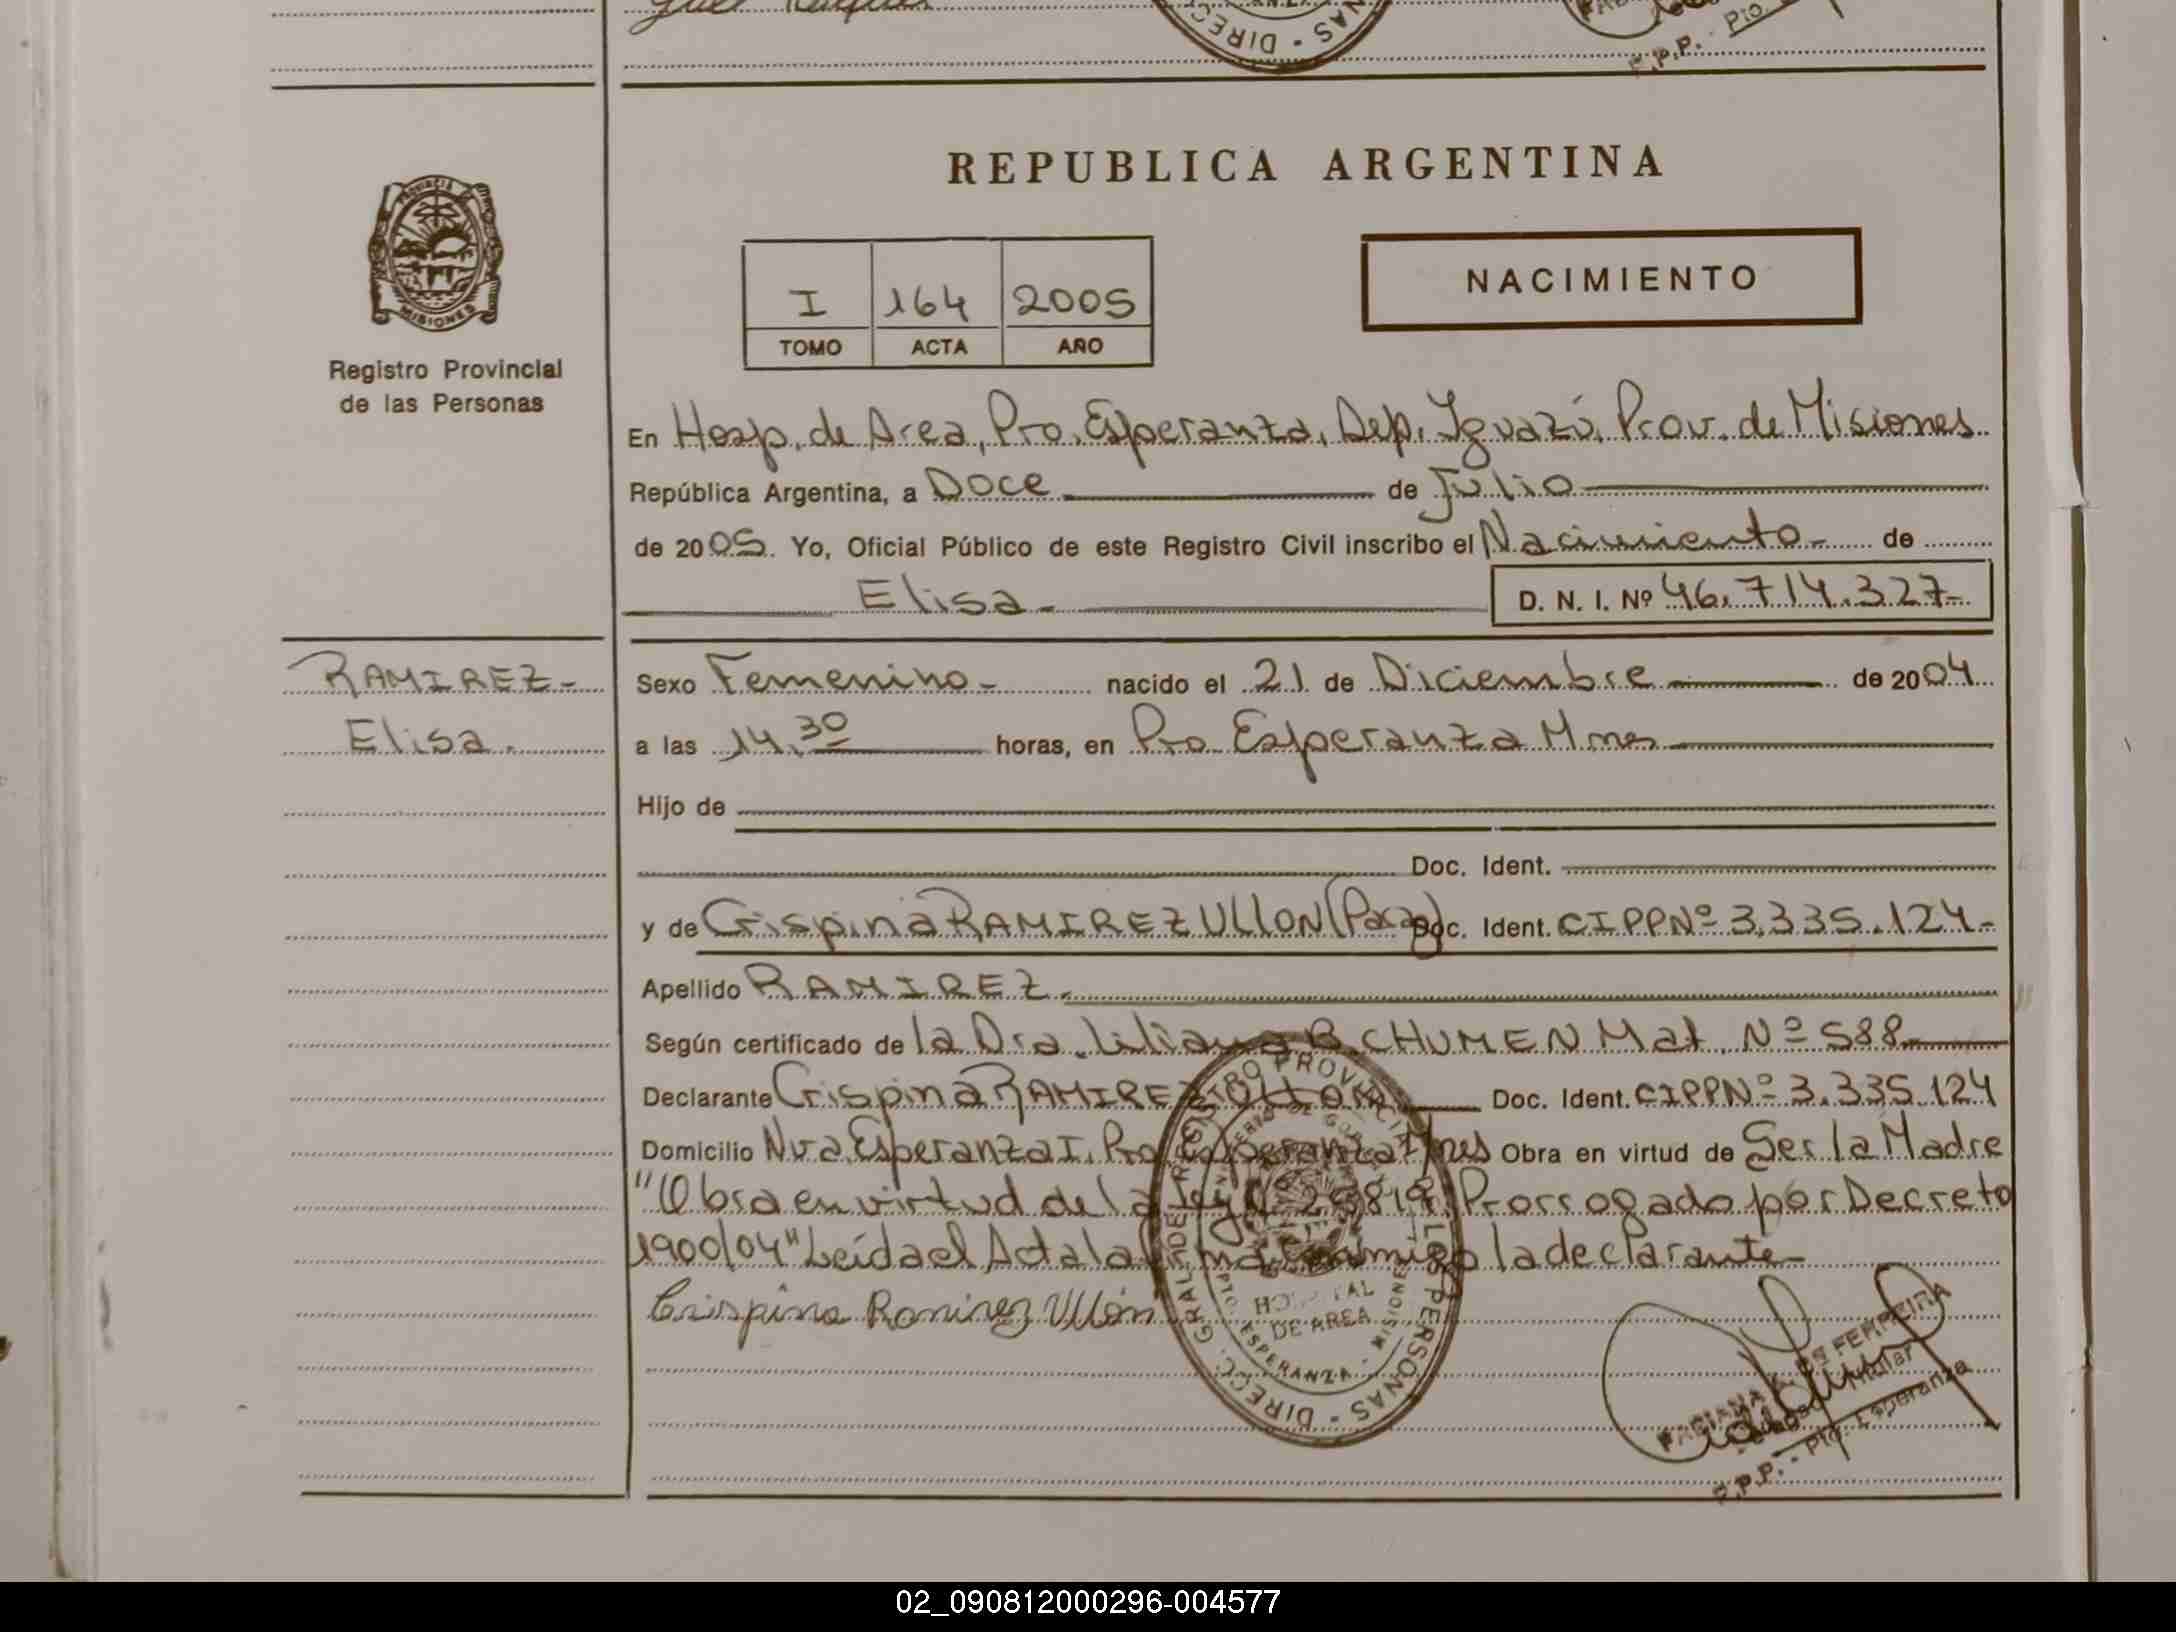 REPUBLICA ARGENTINA
PROVINCIA DE
MISIONES
Registro Provincial
de las Personas
I 164 2005
TOMO ACTA AÑO
NACIMIENTO
En Hosp. de Area, Pto. Esperanza, Dep. Iguazú, Prov. de Misiones
República Argentina, a Doce de Julio
de 2005. Yo, Oficial Público de este Registro Civil inscribo el Nacimiento de
Elisa D. N. I. Nº 46.714.327
RAMIREZ
Elisa.
Sexo Femenino nacido el 21 de Diciembre de 2004
a las 14.30 horas, en Pto Esperanza Mnes
Hijo de
Doc. Ident.
y de Crispina RAMIREZ ULLON (Parag) Doc. Ident. CIPPNº 3.335.124
Apellido RAMIREZ
Según certificado de la Dra. Liliana B. CHUMEN Mat. Nº 588
Declarante Crispina RAMIREZ Ullon Doc. Ident. CIPPNº 3.335.124
Domicilio Nva Esperanza I. Pto Esperanza Mnes Obra en virtud de Ser la Madre
"Obra en virtud de la Ley Prorrogado por Decreto
1900/04" Leída el Acta la firma conmigo la declarante
Crispina Ramirez Ullón
DIRECC. GRAL. DE REGISTRO PROVINCIAL DE LAS PERSONAS
HOSPITAL
DE AREA
ESPERANZA - MISIONES
FERREIRA
Titular
R.P.P. - Pto. Esperanza
02_090812000296-004577